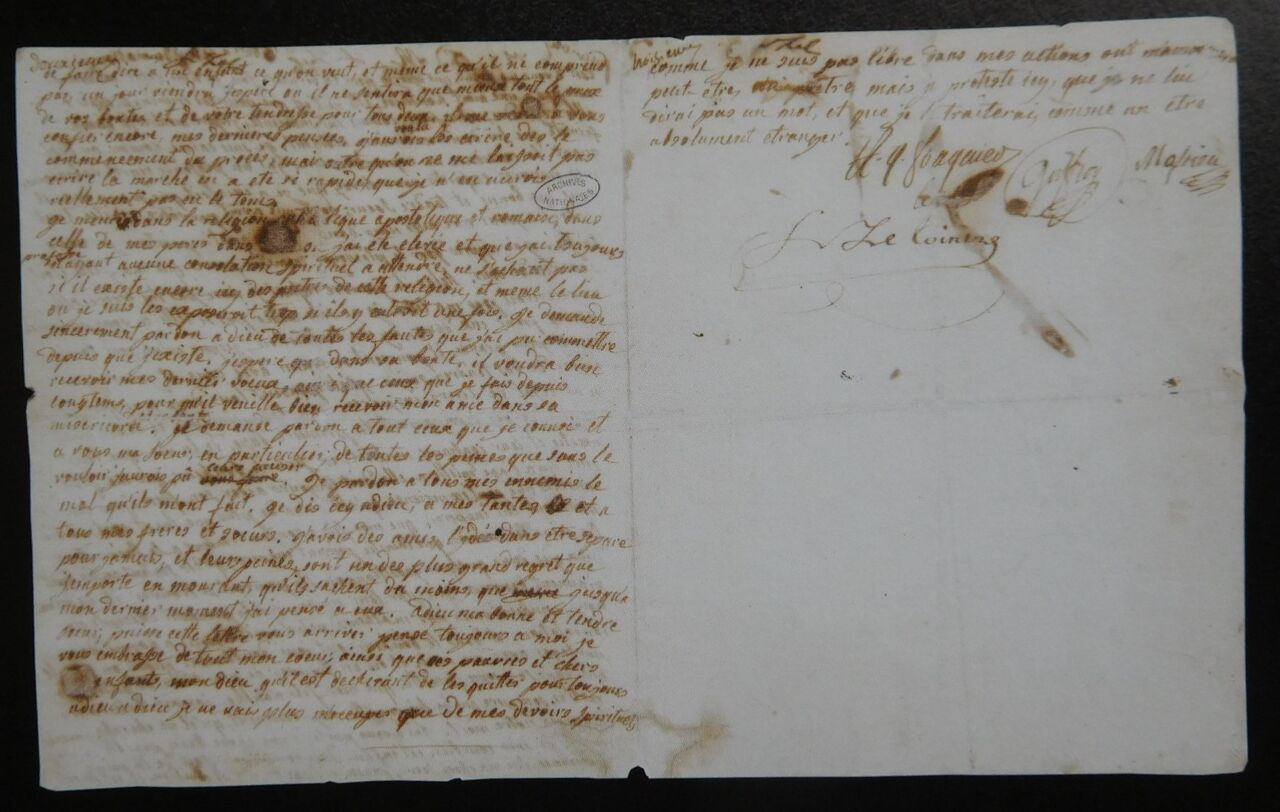 de faire dire a un enfant ce qu'on veut, et même ce qu'il ne comprend
pas, un jour viendra j'espere ou il ne sentira que mieux tout le prix
de vos bontés et de votre tendresse pour tous deux. il me reste a vous
confier encore, mes dernieres pensées, j'aurois voulu les ecrire des le
commencement du proces, mais, outre qu'on ne me laissoit pas
ecrire, la marche en a ete si rapide, que je n'en aurois
reellement pas eu le tems.
je meurs dans la religion catholique apostolique et romaine, dans
celle de mes peres, dans celle ou j'ai ete elevée et que j'ai toujours
professée
n'ayant aucune consolation spirituel a attendre, ne sachant pas
si il existe encore icy des pretres de cette religion, et meme le lieu
ou je suis les exposeroit trop si ils y entroit une fois. je demande
sincerement pardon a dieu de toutes les fautes que j'ai pu commettre
depuis que j'existe. j'espere que dans sa bonté, il voudra bien
recevoir mes derniers voeux, ainsi que ceux que je fais depuis
longtems, pour qu'il veuille bien recevoir mon ame dans sa
misericorde
je demande pardon a tout ceux que je connois et
a vous ma soeur, en particulier de toutes les peines que sans le
vouloir j'aurois pu vous causer. je pardonne a tous mes ennemis le
mal qu'ils m'ont fait. je dis icy adieu, a mes tantes et a
tous mes freres et soeurs. j'avois des amis, l'idée d'en etre separé
pour jamais, et leurs peines, sont un des plus grand regret que
j'emporte en mourant, qu'ils sachent du moins, que jusqu'a
mon dernier moment j'ai pensé a eux. adieu ma bonne et tendre
soeur, puisse cette lettre vous arriver, pensé toujours a moi je
vous embrasse de tout mon coeur, ainsi que ces pauvres et chers
enfants, mon dieu qu'il est dechirant de les quitter pour toujours
adieu adieu je ne vais plus m'occuper que de mes devoirs spirituels
comme je ne suis pas libre dans mes actions on m'amenera
peut-être, un prêtre mais je proteste icy, que je ne lui
dirai pas un mot, et que je le traiterai, comme un etre
absolument etranger.
A. q. fouquier
Massieu
Guffroy
L. Le cointre
ARCHIVES
NATIONALES